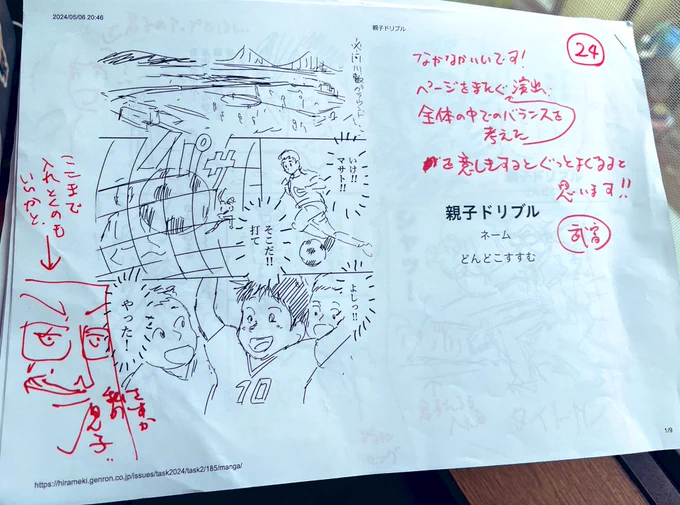 2024/05/06 20:46
親子ドリブル
24
なかなかいいです!
ページをまたぐ演出、
全体の中でのバランスを
考えた
を意識するとぐっとよくなると
思います!!
武富
親子ドリブル
ネーム
どんどこすすむ
グラウンド
いけ!!
マサト!!
そこだ!!
打て
よしっ!!
やった!
10
ここまで
入れとくのも
いいかと。
さすが
私の
息子
1/9
https://hirameki.genron.co.jp/issues/task2024/task2/185/manga/